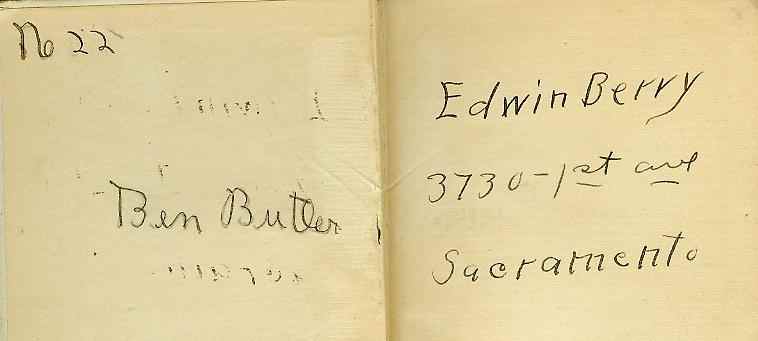 No 22
Ben Butler
Edwin Berry
3730-1st ave
Sacramento